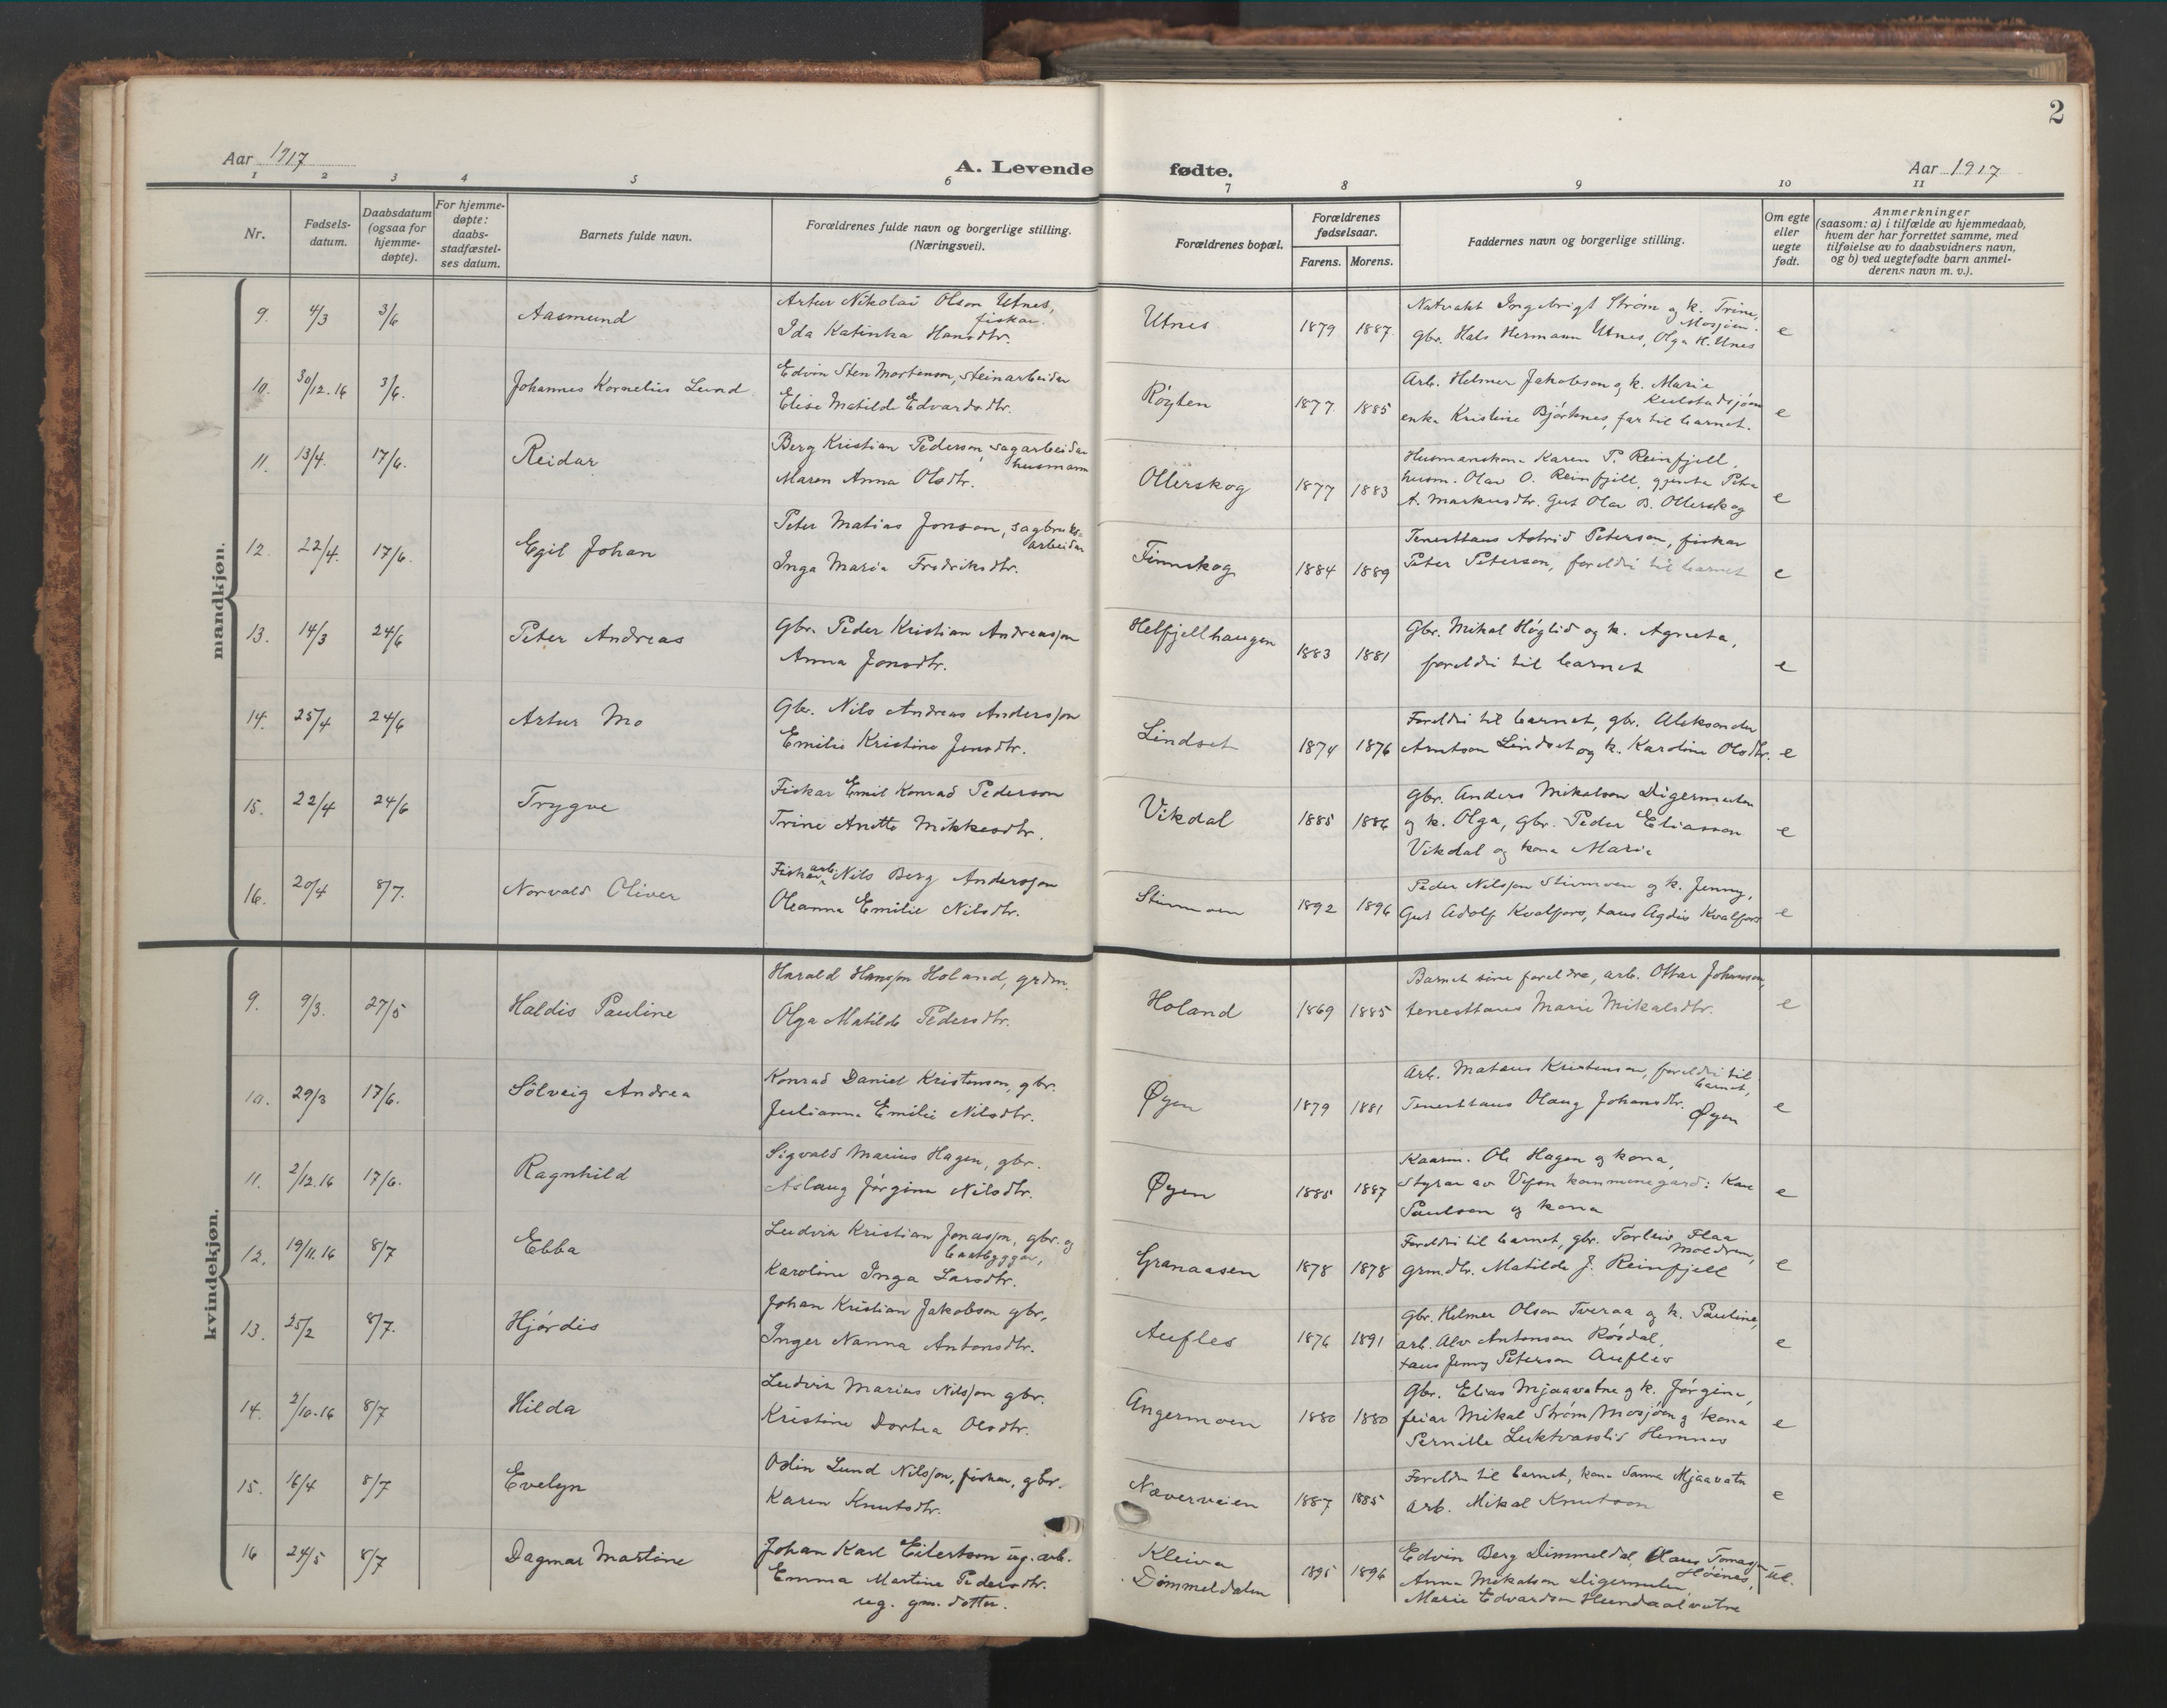 2
Aar 1917
A. Levende fødte.
Aar 1917
1 2 3 4 5 6 7 8 9 10 11
Nr.
Fødsels-
datum.
Daabsdatum
(ogsaa for
hjemme-
døpte).
For hjemme-
døpte:
daabs-
stadfæstel-
ses datum.
Barnets fulde navn.
Forældrenes fulde navn og borgerlige stilling.
(Næringsvei).
Forældrenes bopæl.
Forældrenes
fødselsaar.
Farens. Morens.
Faddernes navn og borgerlige stilling.
Om egte
eller
uegte
født.
Anmerkninger
(saasom: a) i tilfælde av hjemmedaab,
hvem der har forrettet samme, med
tilføielse av to daabsvidners navn,
og b) ved uegtefødte barn anmel-
derens navn m. v.).
mandkjøn.
9. 4/3 3/6 Aasmund
Artur Nikolai Olson Utnes,
fiskar.
Ida Katinka Hansdtr.
Utnes 1879 1887
Natvakt Ingebrigt Strøm og k. Trine,
Mosjøen.
gbr. Hals Hermann Utnes, Olga H. Utnes
e
10. 30/12.16 3/6. Johannes Kornelius Lund
Edvin Sten Mortenson, steinarbeidar
Elise Matilde Edvardsdtr.
Røyten 1877 1885
Arb. Helmer Jakobson og k. Marie
Kulstadsjøen
enke Kristine Bjørknes, far til barnet.
e
11. 13/4. 17/6. Reidar
Berg Kristian Pederson, sagarbeidar
husmann
Maren Anna Olsdtr.
Ollerskog 1877 1883
Husmanskona Karen P. Reinfjell,
husm. Olav O. Reinfjell, gjenta Petra
A. Markusdtr. Gut Olav B. Ollerskog
e
12. 22/4. 17/6. Egil Johan
Peter Matias Jonson, sagbruks-
arbeidar
Inga Maria Fredriksdtr.
Finnskog 1884 1889
Tenesttaus Astrid Peterson, fiskar
Peter Peterson, foreldri til barnet
e
13. 14/3 24/6 Peter Andreas
Gbr. Peder Kristian Andreasson
Anna Jonsdtr.
Helfjellhaugen 1883 1881
Gbr. Mikal Høglid og k. Agneta,
foreldri til barnet
e
14. 25/4 24/6 Artur Mo
Gbr. Nils Andreas Andersson
Emilie Kristine Jensdtr.
Lindset 1874 1876
Foreldri til barnet, gbr. Aleksander
Arntson Lindset og k. Karoline Olsdtr.
e
15. 22/4 24/6 Trygve
Fiskar Emil Konrad Pederson
Trine Anette Mikkesdtr.
Vikdal 1885 1886
Gbr. Anders Mikalson Digermulen
og k. Olga, gbr. Peder Eliasson
Vikdal og kona Marie
e
16. 20/4 8/7. Norvald Oliver
Fiskararb. Nils Berg Andersson
Oleanna Emilie Nilsdtr.
Stimoen 1892 1896
Peder Nilsson Stimoen og k. Jenny,
Gut Adolf Kvalfors, taus Agdis Kvalfors
e
kvindekjøn.
9. 9/3. 27/5 Haldis Pauline
Harald Hansson Holand, grdm.
Olga Matilde Pedersdtr.
Holand 1869 1885
Barnet sine foreldre, arb. Ottar Johanson,
tenesttaus Marie Mikalsdtr.
e
10. 29/3 17/6. Sølveig Andrea
Konrad Daniel Kristenson, gbr.
Julianna Emilie Nilsdtr.
Øyen 1879 1881
Arb. Mataus Kristenson, foreldri til
barnet,
Tenesttaus Olaug Johansdtr. Øyen
e
11. 2/12.16 17/6. Ragnhild
Sigvald Marius Hagen, gbr.
Aslaug Jørgine Nilsdtr.
Øyen 1885 1887
Kaarm. Ole Hagen og kona,
Styrar av Vefsn kommunegard: Kare
Paulson og kona
e
12. 19/11.16 8/7 Ebba
Ludvik Kristian Jonasson, gbr. og
baatbyggar,
Karoline Inga Larsdtr.
Granaasen 1878 1878
Foreldri til barnet, gbr. Torleiv Flaa
Moldren,
grmdtr. Matilde J. Reinfjell
e
13. 25/2 8/7. Hjørdis
Johan Kristian Jakobson gbr.
Inger Nanna Antonsdtr.
Aufles 1876 1891
Gbr. Helmer Olson Tveraa og k. Pauline,
arb. Alv Antonson Røsdal,
taus Jenny Peterson Aufles
e
14. 2/10.16 8/7 Hilda
Ludvik Marius Nilsson gbr.
Kristine Dortea Olsdtr.
Angermoen 1880 1880
Gbr. Elias Mjaavatne og k. Jørgine,
feiar Mikal Strøm Mosjøen og kona
Pernille Luktvasslid Hemnes
e
15. 16/4 8/7 Evelyn
Odin Lund Nilsson, fiskar, gbr.
Karen Knutsdtr.
Næverveien 1887 1885
Foreldri til barnet, kona Sanna Mjaavatn
arb. Mikal Knutson
e
16 24/5 8/7 Dagmar Martine
Johan Karl Eilertson ug. arb.
Emma Martine Pedersdtr.
ug. gm. dotter.
Kleiva
Dømmeldalen
1895 1896
Edvin Berg Dimmeldal, Klaus Tomasson
Høines,
Anna Mikalson Digermulen,
Marie Edvardson Hundaalvatne
ue.